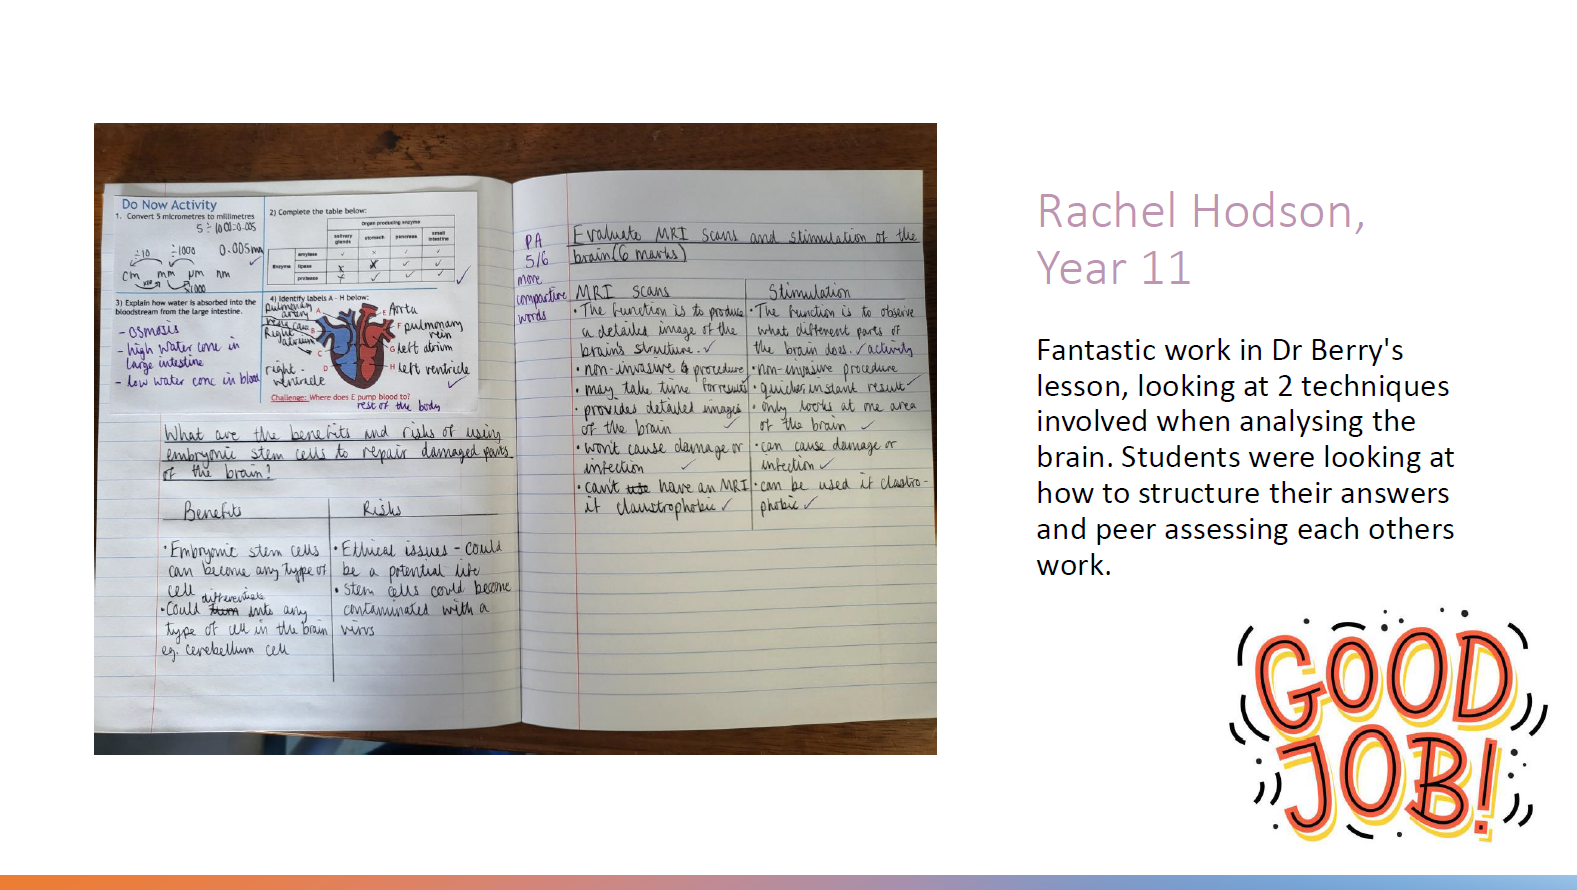 Do Now Activity
1. Convert 5 micrometres to millimetres
5 ÷ 1000=0.005
÷10 ÷1000 0.005mm
cm mm µm nm
x10 x1000
2) Complete the table below:
Organ producing enzyme
salivary glands stomach pancreas small intestine
Enzyme
amylase ✓ x ✓ ✓
lipase x x ✓ ✓
protease x ✓ ✓ ✓
3) Explain how water is absorbed into the
bloodstream from the large intestine.
- osmosis
- high water conc in
large intestine
- low water conc in blood
4) Identify labels A - H below:
pulmonary
artery
vena cava
Right
atrium
right -
ventricle
A
B
C
D
E Aorta
F pulmonary
vein
G left atrium
H left ventricle
Challenge: Where does E pump blood to?
rest of the body
What are the benefits and risks of using
embryonic stem cells to repair damaged parts
of the brain?
Benefits
• Embryonic stem cells
can become any type of
cell
differentiate
• Could turn into any
type of cell in the brain
eg. cerebellum cell
Risks
• Ethical issues - could
be a potential life
• stem cells could become
contaminated with a
virus
PA
5/6
more
comparative
words
Evaluate MRI scans and stimulation of the
brain (6 marks)
MRI scans
• The function is to produce
a detailed image of the
brain's structure. ✓
• non-invasive procedure
• may take time for results
• provides detailed images
of the brain ✓
• won't cause damage or
infection ✓
• can't use have an MRI
if claustrophobic ✓
Stimulation
• The function is to observe
what different parts of
the brain does. ✓ activity
• non-invasive procedure
• quicker, instant result ✓
• only looks at one area
of the brain ✓
• can cause damage or
infection ✓
• can be used if claustro-
phobic ✓
Rachel Hodson,
Year 11
Fantastic work in Dr Berry's
lesson, looking at 2 techniques
involved when analysing the
brain. Students were looking at
how to structure their answers
and peer assessing each others
work.
GOOD
JOB!